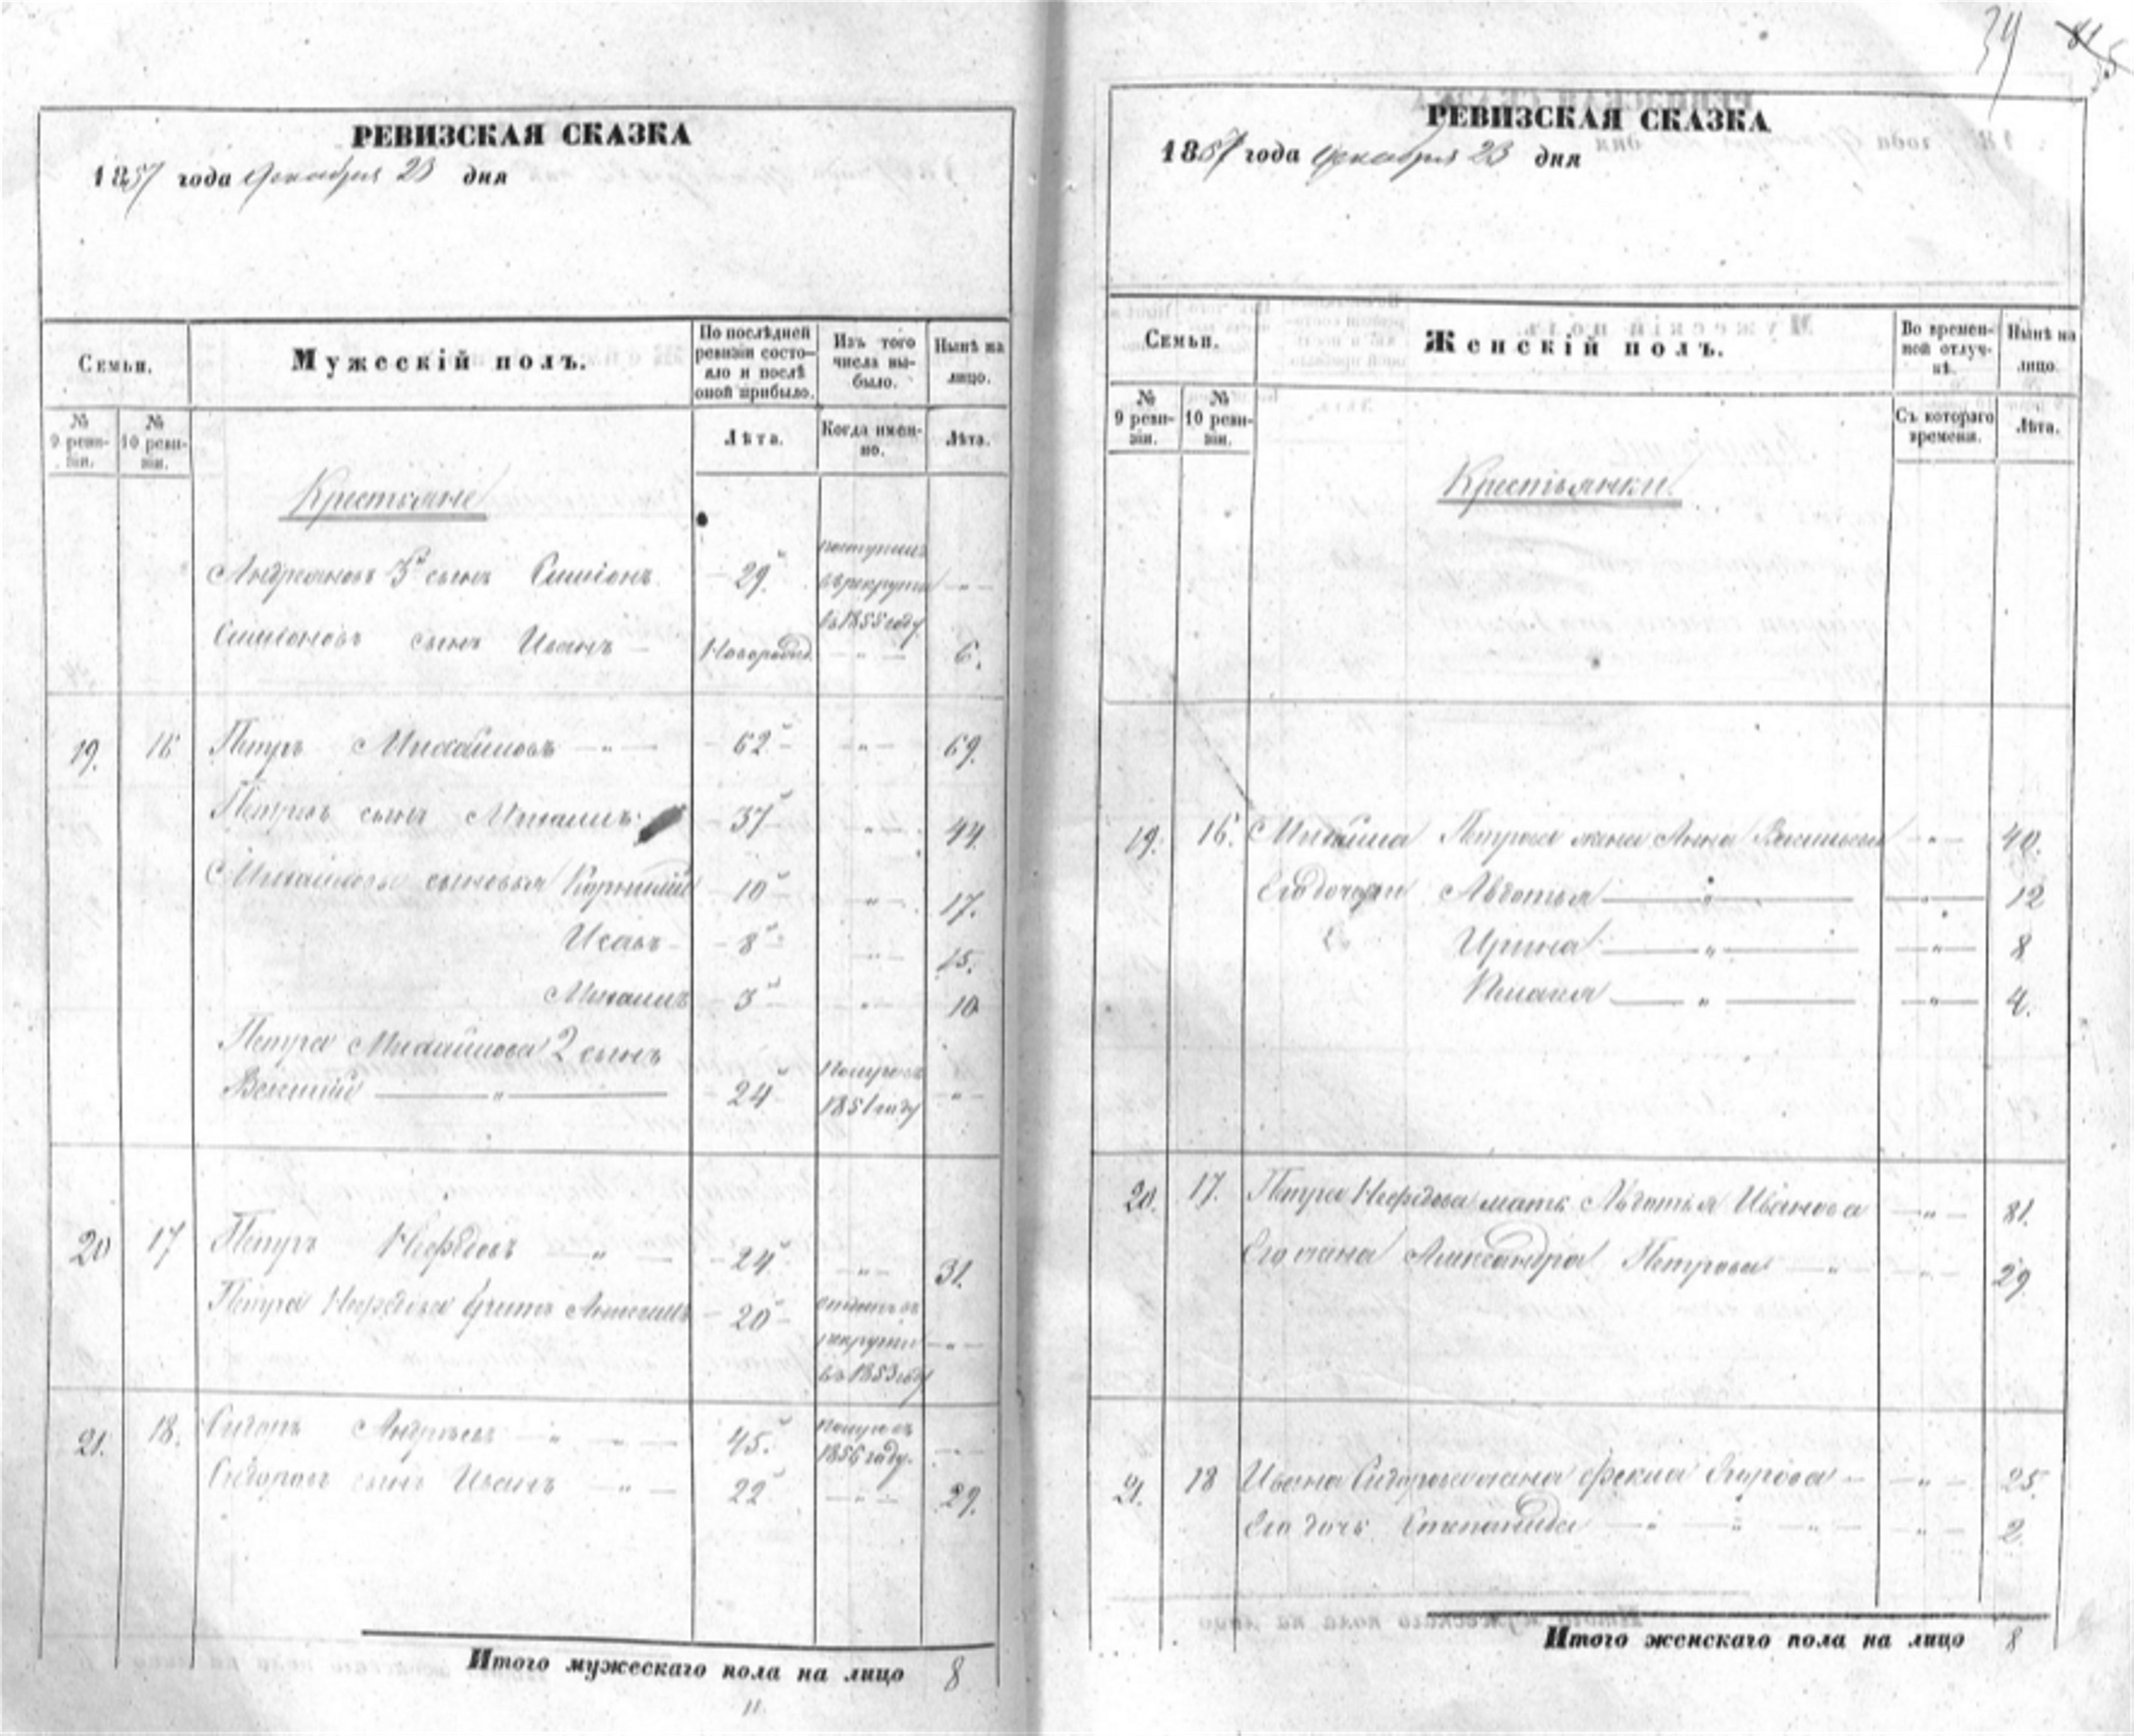 34
РЕВИЗСКАЯ СКАЗКА
1857 года Декабря 23 дня
Семьи.
Мужескій полъ.
По послѣдней ревизіи состояло и послѣ оной прибыло.
Изъ того числа выбыло.
Нынѣ на лицо.
№ 9 ревизіи.
№ 10 ревизіи.
Лѣта.
Когда именно.
Лѣта.
Крестьяне
поступилъ
Андреяновъ 3й сынъ Симіонъ 29 въ рекруты
въ 1855 году
Симіоновъ сынъ Иванъ Новорожд. 6.
19. 16 Петръ Михайловъ 62 69.
Петровъ сынъ Михаилъ 37 44.
Михайловы сыновья Корнилій 10 17.
Исаъ 8 15.
Михаилъ 3 10
Петра Михайлова 2 сынъ
Василій 24 Померъ въ 1851 году
20 17 Петръ Нефедовъ 24 31.
Петра Нефедова братъ Алексѣй 20 отданъ въ
рекруты
въ 1853 году
21. 18. Сидоръ Андреевъ 45. Померъ въ
1856 году.
Сидоровъ сынъ Иванъ 22 29.
Итого мужескаго пола на лицо 8
РЕВИЗСКАЯ СКАЗКА
1857 года Декабря 23 дня
Семьи.
Женскій полъ.
Во временной отлучкѣ.
Нынѣ на лицо.
№ 9 ревизіи.
№ 10 ревизіи.
Съ котораго времени.
Лѣта.
Крестьянки.
19. 16. Михайла Петрова жена Анна Васильева 40.
Его дочери Авдотья 12
Ирина 8
4.
20. 17. Петра Нефедова мать Авдотья Иванова 81.
Его жена Александра Петрова 29
21. 18 Ивана Сидорова жена Фекла Егорова 25.
Его дочь Степанида 2
Итого женскаго пола на лицо 8